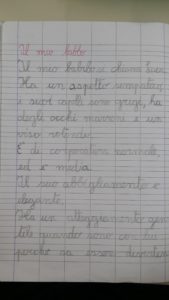 Il mio babbo
Il mio babbo si chiama Luca.
Ha un aspetto simpatico,
i suoi capelli sono grigi, ha
degli occhi marroni e un
viso rotondo.
È di corporatura normale,
ed è media.
Il suo abbigliamento è
elegante.
Ha un atteggiamento gen
tile quando sono con lui
perché da essere